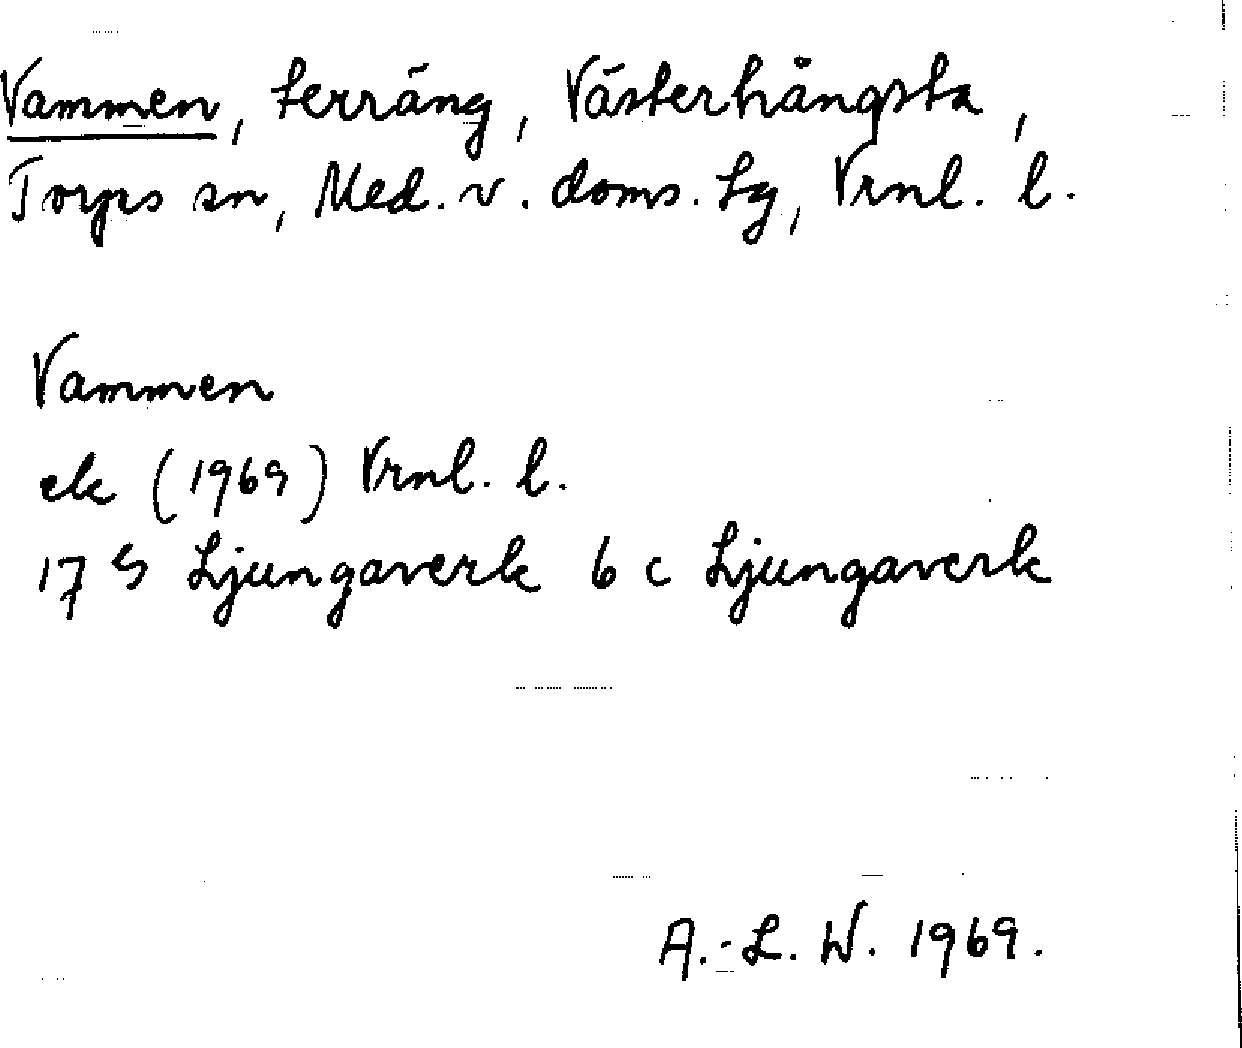 Vammen, terräng, Västerhångsta,
Torps sn, Med. v. doms. tg, Vrnl. l.
Vammen
ek (1969) Vrnl. l.
17 G Ljungaverk 6 c Ljungaverk
A.-L. W. 1969.